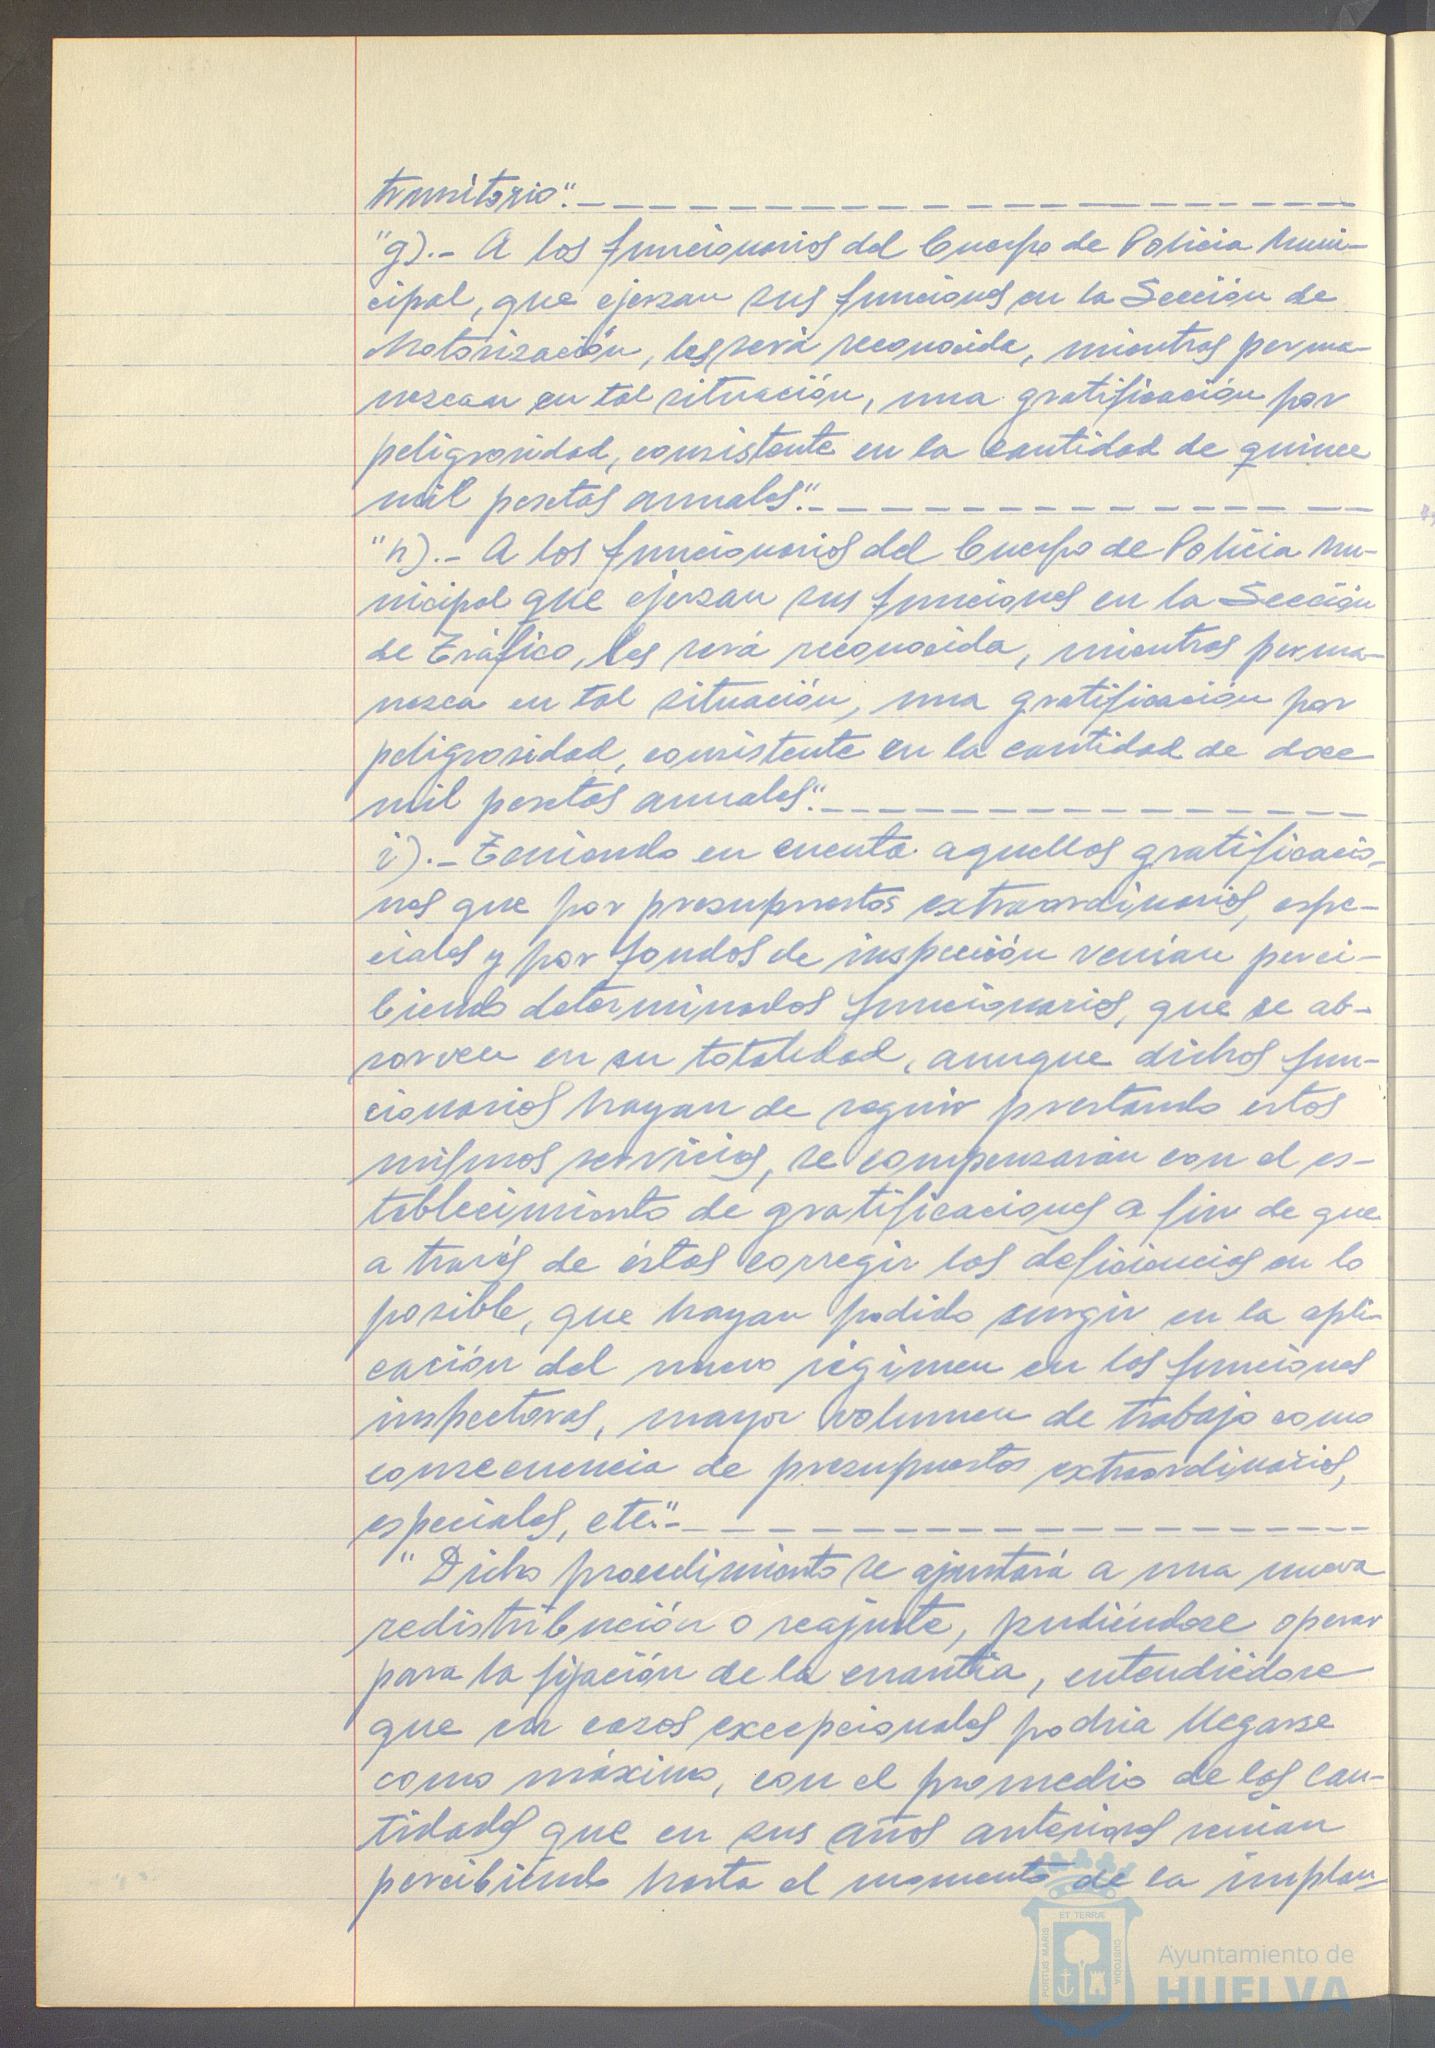 transitorio".- — — — — — — — — — — — — — —
"g).- A los funcionarios del Cuerpo de Policia Muni-
cipal, que ejerzan sus funciones en la Sección de
Motorización, les será reconocida, mientras perma-
nezcan en tal situación, una gratificación por
peligrosidad, consistente en la cantidad de quince
mil pesetas anuales".- — — — — — — — — — — —
"h).- A los funcionarios del Cuerpo de Policia Mu-
nicipal que ejerzan sus funciones en la Sección
de Tráfico, les será reconocida, mientras perma-
nezca en tal situación, una gratificación por
peligrosidad, consistente en la cantidad de doce
mil pesetas anuales".- — — — — — — — — — — —
i).- Teniendo en cuenta aquellas gratificacio-
nes que por presupuestos extraordinarios, espe-
ciales y por fondos de inspección venian perci-
biendo determinados funcionarios, que se ab-
sorven en su totalidad, aunque dichos fun-
cionarios hayan de seguir prestando estos
mismos servicios, se compensarán con el es-
tablecimiento de gratificaciones a fin de que
a través de éstas corregir las deficiencias en lo
posible, que hayan podido surgir en la apli-
cación del nuevo régimen en las funciones
inspectoras, mayor volumen de trabajo como
consecuencia de presupuestos extraordinarios,
especiales, etc".- — — — — — — — — — — — — —
"Dicho procedimiento se ajustará a una nueva
redistribución o reajuste, pudiéndose operar
para la fijación de la cuantia, entendiédose
que en casos excepcionales podria llegarse
como máximo, con el promedio de las can-
tidades que en sus años anteriores venian
percibiendo hasta el momento de la implan-
PORTUS MARIS
ET TERRÆ
CUSTODIA
Ayuntamiento de
HUELVA